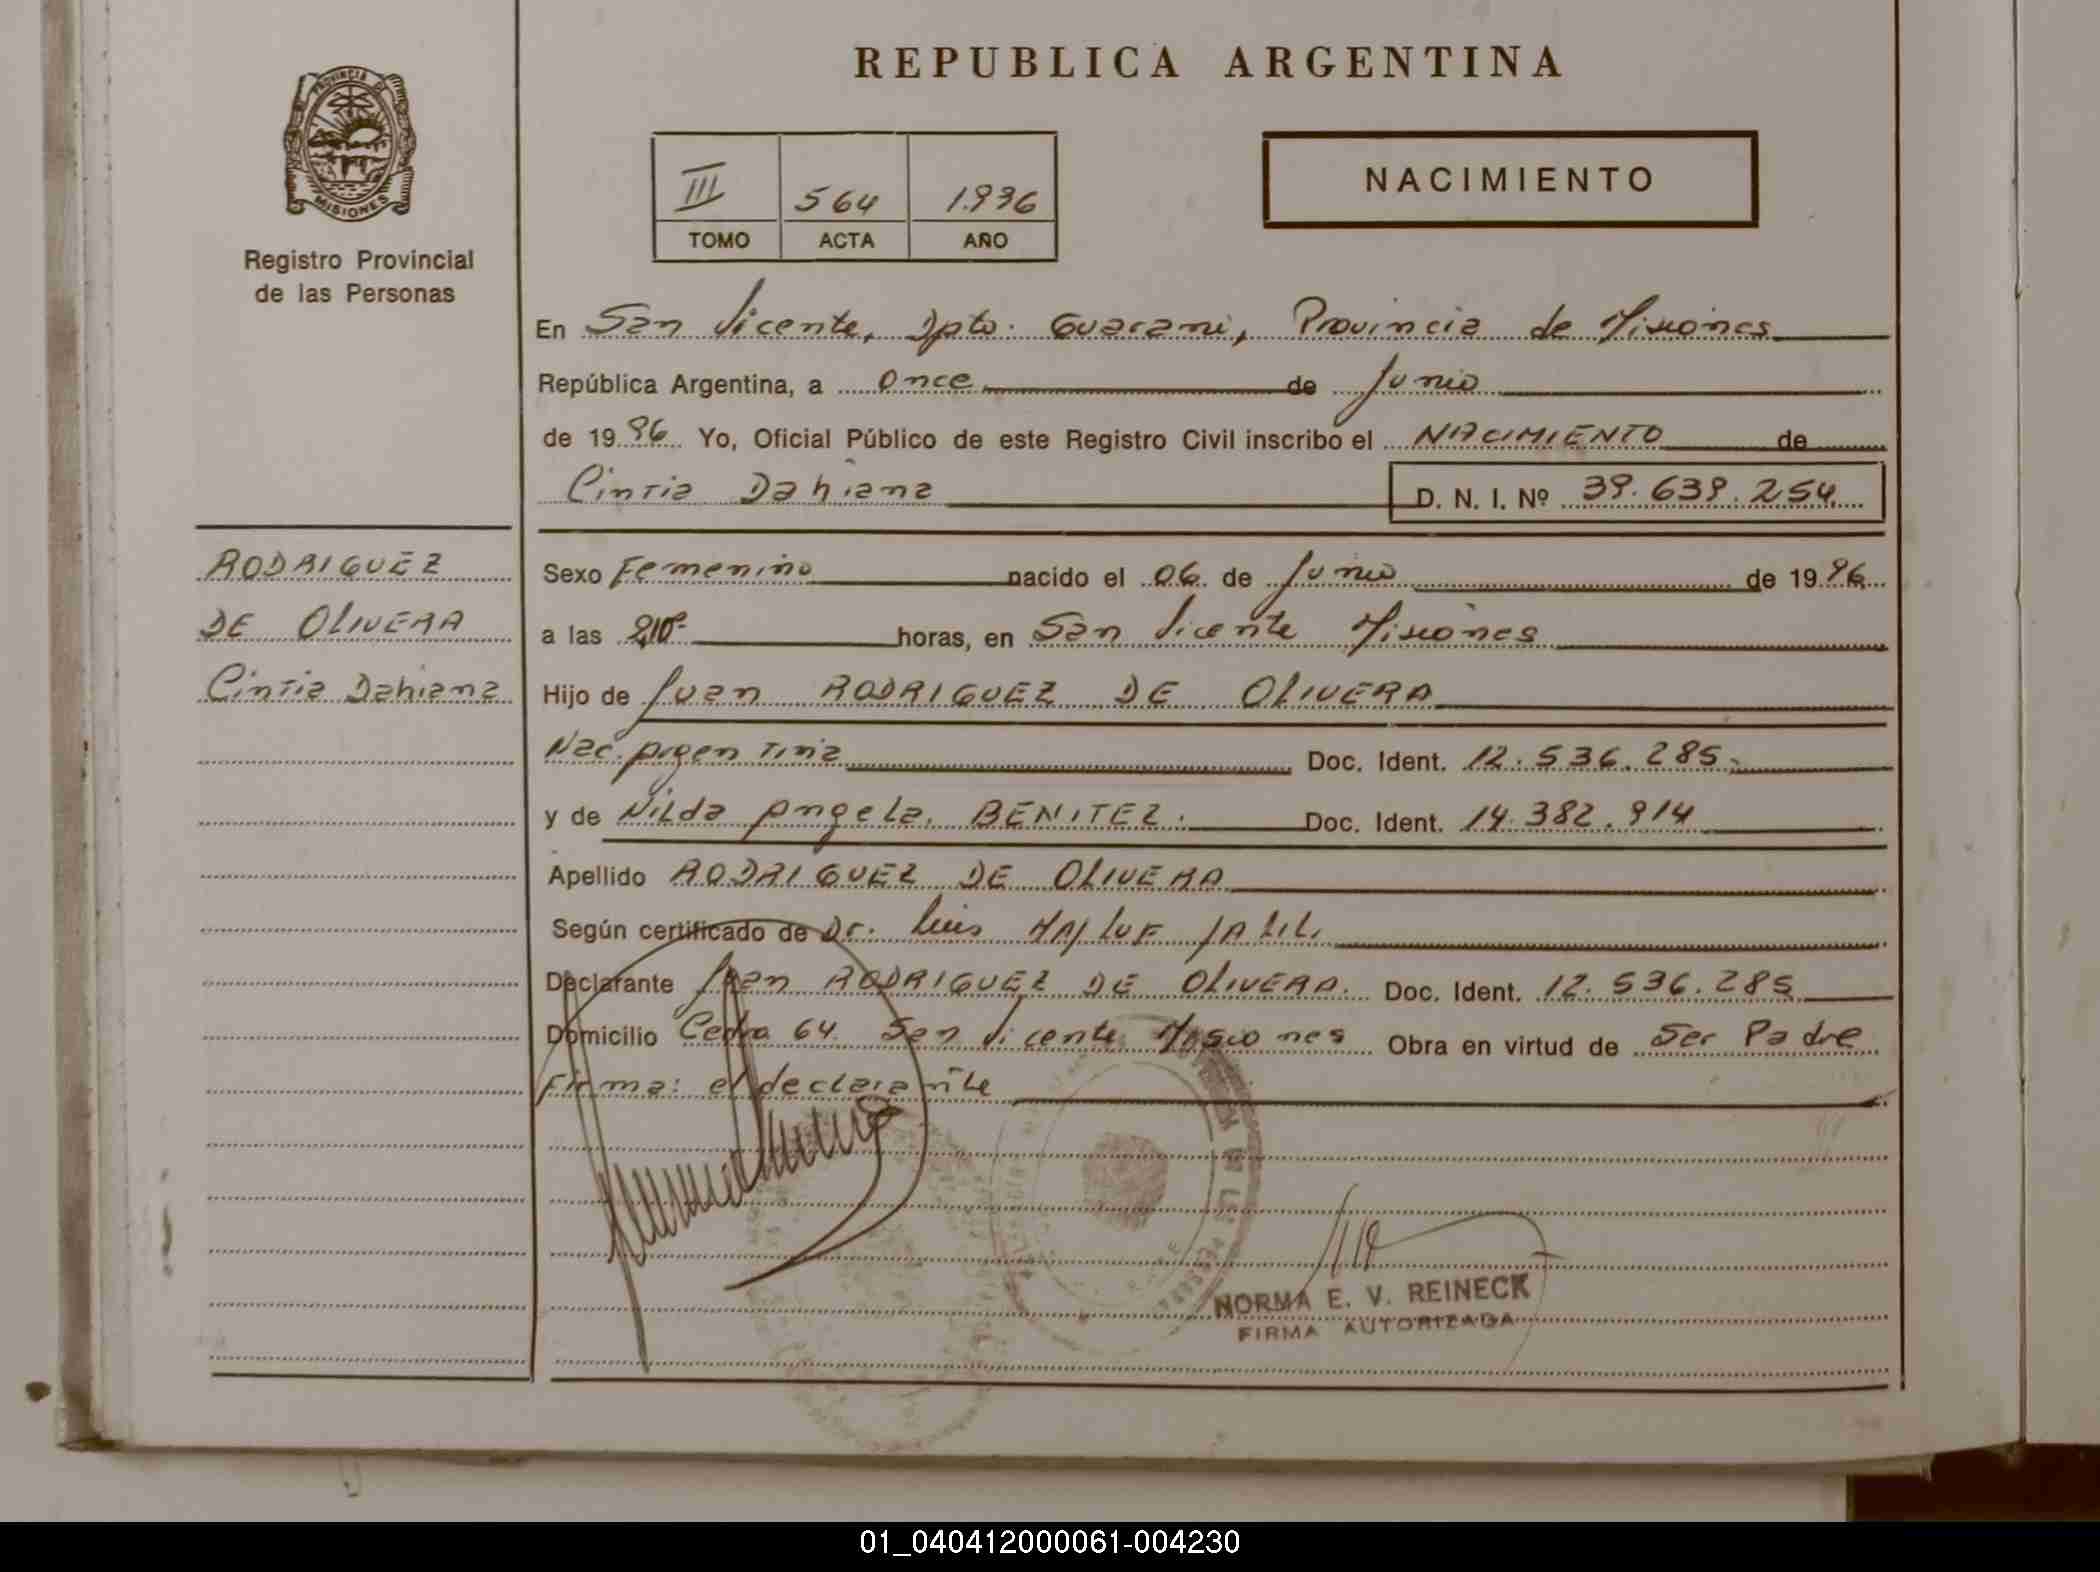 REPUBLICA ARGENTINA
PROVINCIA DE
MISIONES
Registro Provincial
de las Personas
III 564 1.996
TOMO ACTA AÑO
NACIMIENTO
En San Vicente, Dpto. Guarani, Provincia de Misiones
República Argentina, a once de Junio
de 19 96 Yo, Oficial Público de este Registro Civil inscribo el NACIMIENTO de
Cintia Dahiana D. N. I. Nº 39.639.254
RODRIGUEZ
DE OLIVERA
Cintia Dahiana
Sexo Femenino nacido el 06 de Junio de 19 96
a las horas, en San Vicente Misiones
Hijo de Juan RODRIGUEZ DE OLIVERA
Nac. Argentina Doc. Ident. 12.536.285
y de Nilda Angela BENITEZ. Doc. Ident. 14.382.914
Apellido RODRIGUEZ DE OLIVERA
Según certificado de Dr. Luis JALIL
Declarante Juan RODRIGUEZ DE OLIVERA. Doc. Ident. 12.536.285
Domicilio Cedro 64 San Vicente Misiones Obra en virtud de Ser Padre
Firma: el declarante
NORMA E. V. REINECK
FIRMA AUTORIZADA
01_040412000061-004230